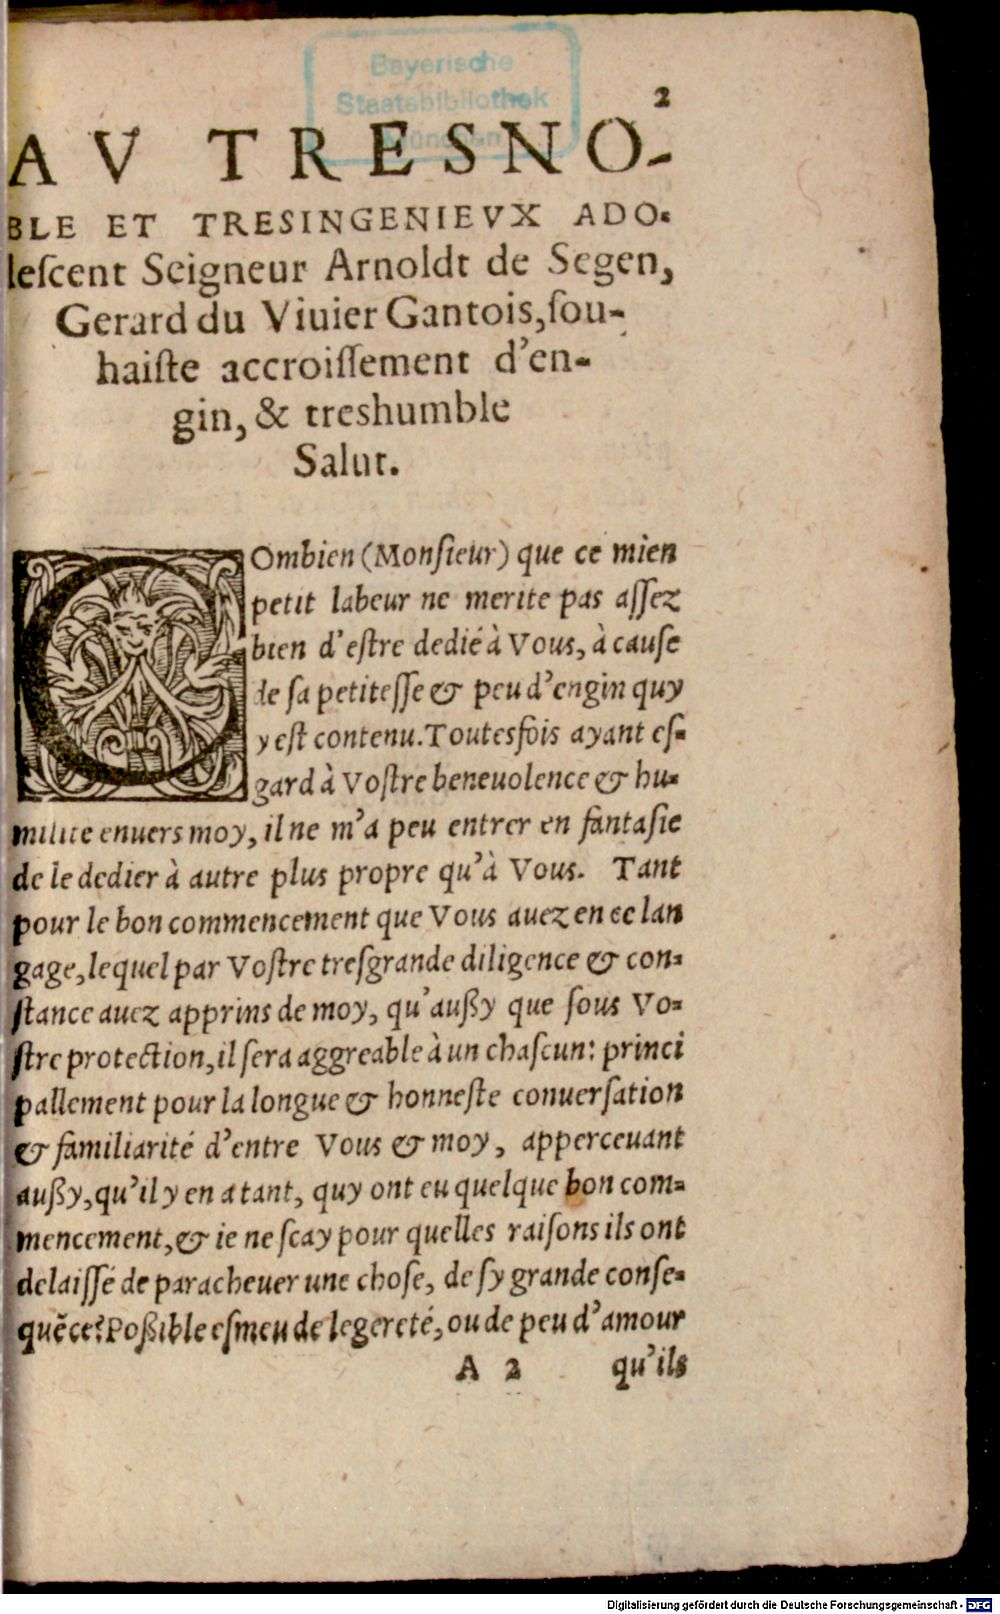 Bayerische
Staatsbibliothek
München
2
AV TRESNO-
BLE ET TRESINGENIEVX ADO-
leſcent Seigneur Arnoldt de Segen,
Gerard du Viuier Gantois, ſou-
haiſte accroiſſement d'en-
gin, & treshumble
Salut.
COmbien (Monſieur) que ce mien
petit labeur ne merite pas aſſez
bien d'eſtre dedié à Vous, à cauſe
de ſa petiteſſe & peu d'engin quy
y eſt contenu. Toutesfois ayant eſ-
gard à Voſtre beneuolence & hu-
milite enuers moy, il ne m'a peu entrer en fantaſie
de le dedier à autre plus propre qu'à Vous. Tant
pour le bon commencement que Vous auez en ce lan
gage, lequel par Voſtre treſgrande diligence & con-
ſtance auez apprins de moy, qu'außy que ſous Vo-
ſtre protection, il ſera aggreable à un chaſcun: princi
pallement pour la longue & honneſte conuerſation
& familiarité d'entre Vous & moy, apperceuant
außy, qu'il y en a tant, quy ont eu quelque bon com-
mencement, & ie ne ſcay pour quelles raiſons ils ont
delaiſſé de paracheuer une choſe, de ſy grande conſe-
quẽce? Poßible eſmeu de legereté, ou de peu d'amour
A 2 qu'ils
Digitalisierung gefördert durch die Deutsche Forschungsgemeinschaft - DFG